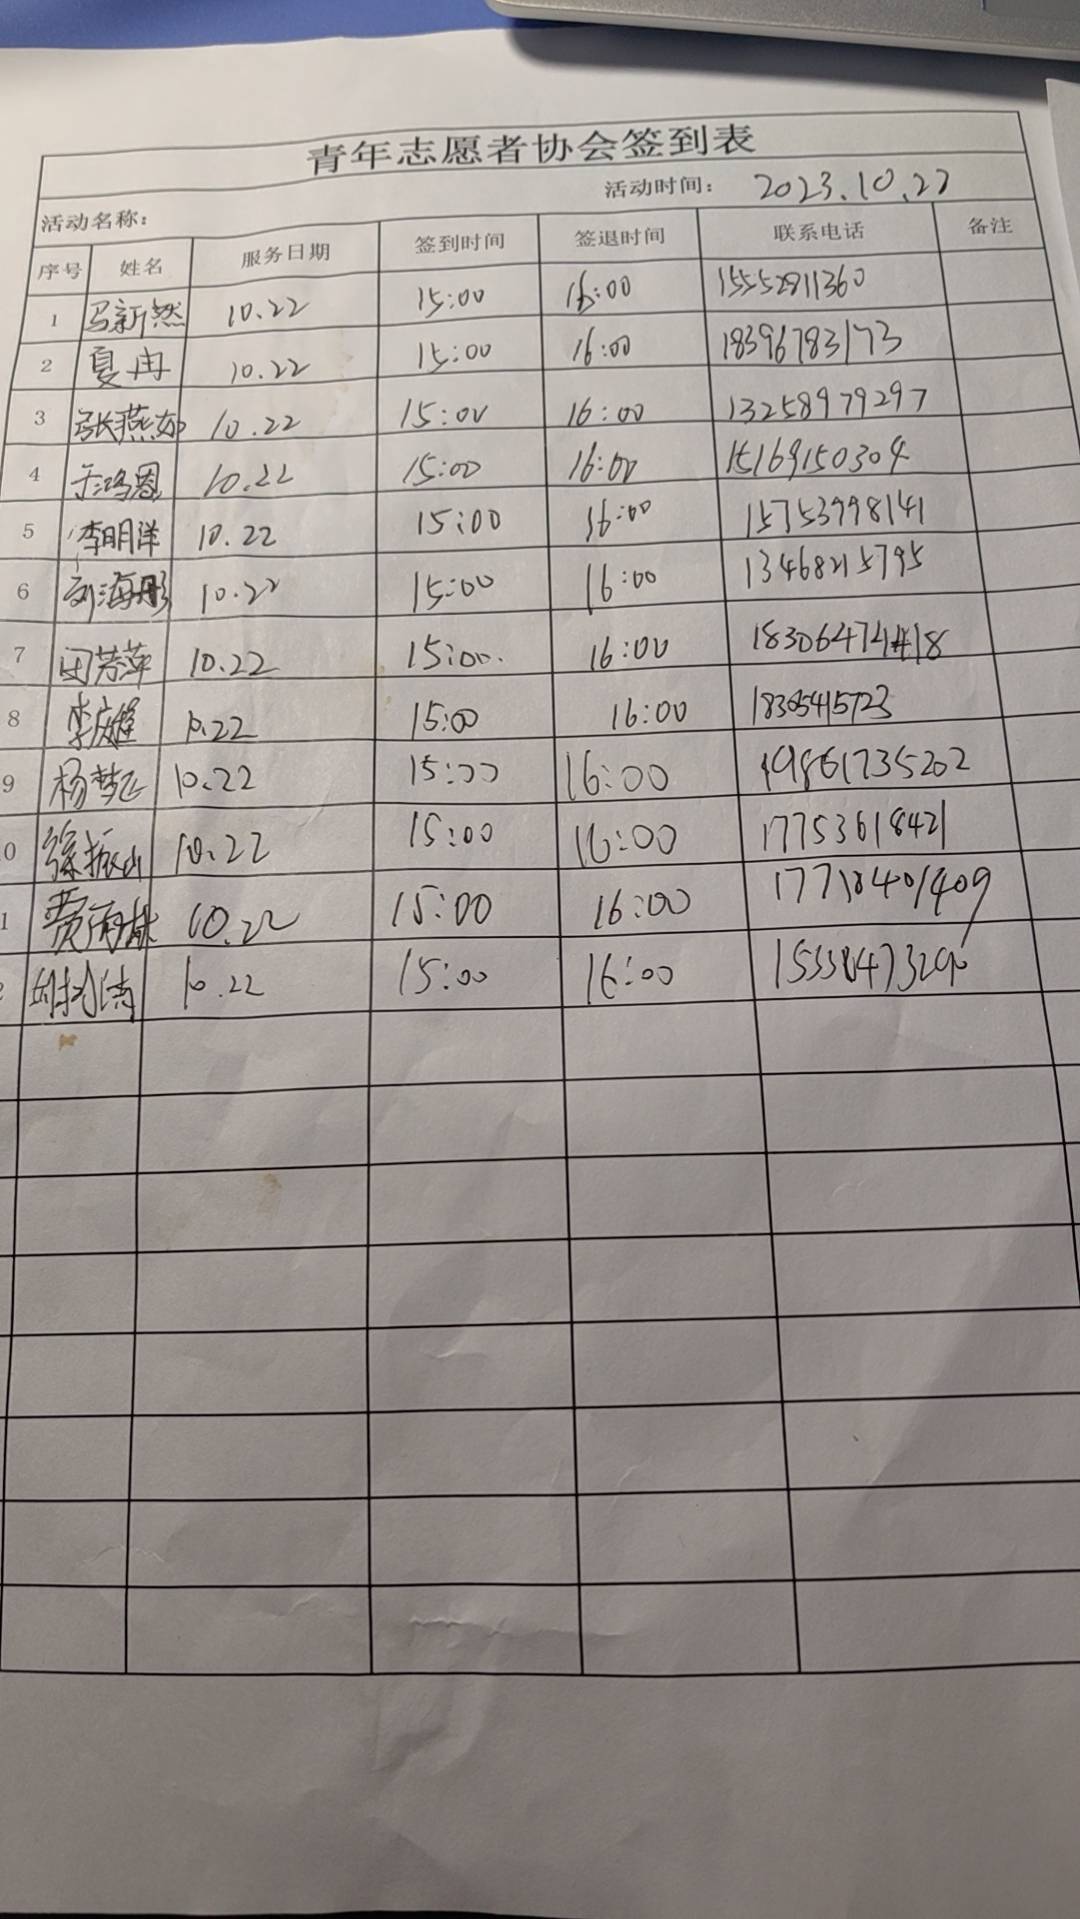 青年志愿者协会签到表
活动名称： 活动时间： 2023.10.22
序号 姓名 服务日期 签到时间 签退时间 联系电话 备注
1 马新然 10.22 15:00 16:00 15552911360
2 夏冉 10.22 15:00 16:00 18396783173
3 张燕如 10.22 15:00 16:00 13258979297
4 于鸿恩 10.22 15:00 16:00 15169150304
5 李明洋 10.22 15:00 16:00 15753998141
6 刘海彤 10.22 15:00 16:00 13468215795
7 闵芳萍 10.22 15:00 16:00
8 10.22 15:00 16:00 18305415723
9 杨梦飞 10.22 15:00 16:00 19861735202
0 徐振山 10.22 15:00 16:00 17753618421
1 费雨林 10.22 15:00 16:00
10.22 15:00 16:00